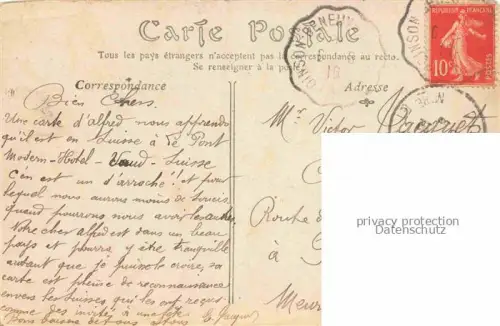 Carte Postale
Tous les pays étrangers n'acceptent pas la correspondance au recto.
Se renseigner à la poste
Correspondance
Adresse
REPUBLIQUE FRANÇAISE
10c
POSTES
Bien Chers.
Une carte d'alfred nous apprends
qu'il est en Suisse à le Pont
Modern-Hôtel-Vaud-Suisse
C'en est un d'arroché!! et pour
lequel nous aurons moins de soucis,
quand pourrons nous avoir les autres
Votre cher alfred est dans un beau
pays et pourra y être tranquille
autant que je puisse le croire, sa
carte est pleine de reconnaissance
envers les Suisses qui les ont reçus
comme des invités à une fête
Bons baisers de tous à tous
Mr Victor
Route
à
Meur
privacy protection
Datenschutz